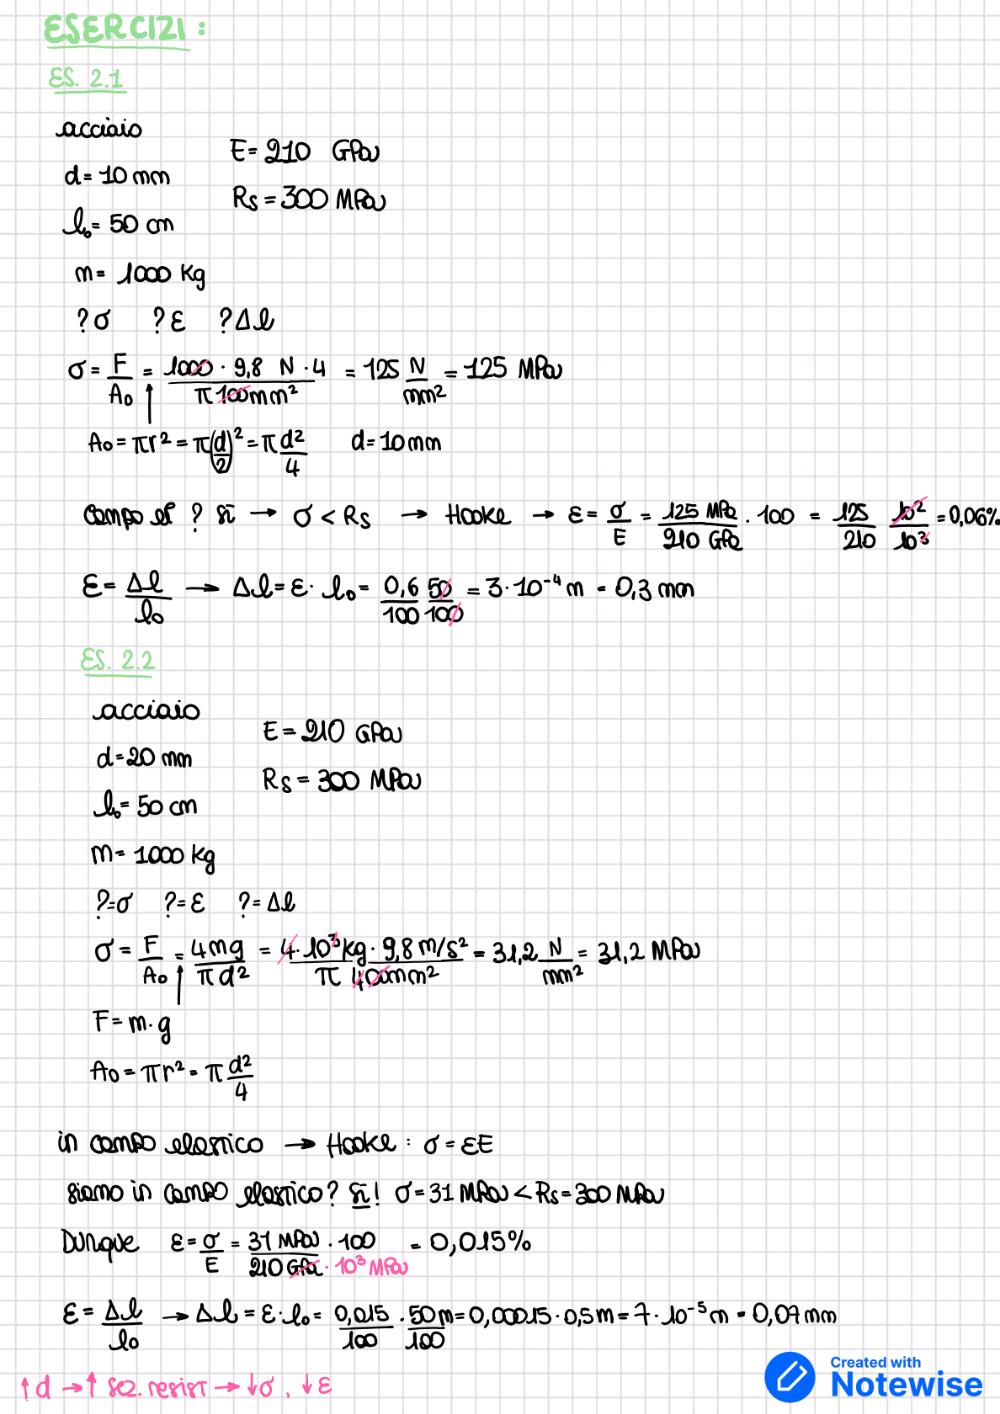 ESERCIZI :
ES. 2.1
acciaio
E = 210 GPa
d = 10 mm
Rs = 300 MPa
l₀ = 50 cm
m = 1000 Kg
? σ ? ε ? Δl
σ = F/A₀ = 1000 · 9,8 N · 4 / π 100 mm² = 125 N/mm² = 125 MPa
A₀ = πr² = π(d/2)² = π d²/4 d = 10 mm
campo el ? sì → σ < Rs → Hooke → ε = σ/E = 125 MPa / 210 GPa · 100 = 125/210 10²/10³ = 0,06%
ε = Δl/l₀ → Δl = ε · l₀ = 0,6/100 50/100 = 3 · 10⁻⁴ m = 0,3 mm
ES. 2.2
acciaio
E = 210 GPa
d = 20 mm
Rs = 300 MPa
l₀ = 50 cm
m = 1000 kg
? = σ ? = ε ? = Δl
σ = F/A₀ = 4mg/πd² = 4 · 10³ kg · 9,8 m/s² / π 400 mm² = 31,2 N/mm² = 31,2 MPa
F = m · g
A₀ = πr² = π d²/4
in campo elastico → Hooke : σ = εE
siamo in campo elastico? sì! σ = 31 MPa < Rs = 300 MPa
Dunque ε = σ/E = 31 MPa / 210 GPa · 10³ MPa · 100 = 0,015%
ε = Δl/l₀ → Δl = ε · l₀ = 0,015/100 · 50/100 m = 0,00015 · 0,5 m = 7 · 10⁻⁵ m = 0,07 mm
↑ d → ↑ sez. resist → ↓σ , ↓ε
Created with
Notewise